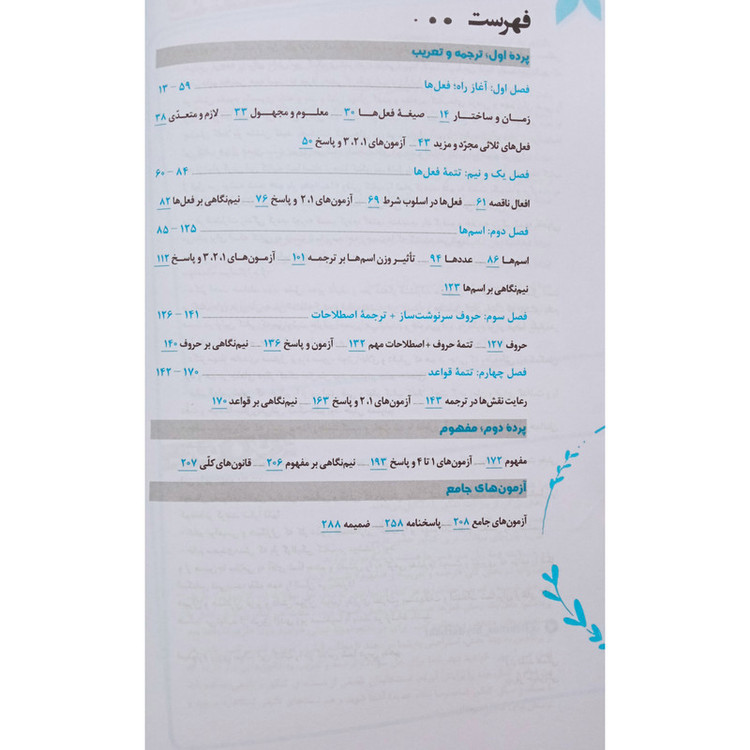 فهرست
پردهٔ اول؛ ترجمه و تعریب
فصل اول: آغاز راه؛ فعل‌ها ۵۹ – ۱۳
زمان و ساختار ۱۴ صیغهٔ فعل‌ها ۳۰ معلوم و مجهول ۳۳ لازم و متعدّی ۳۸
فعل‌های ثلاثی مجرّد و مزید ۴۳ آزمون‌های ۱، ۲، ۳ و پاسخ ۵۰
فصل یک و نیم: تتمهٔ فعل‌ها ۸۴ – ۶۰
افعال ناقصه ۶۱ فعل‌ها در اسلوب شرط ۶۹ آزمون‌های ۱، ۲ و پاسخ ۷۶ نیم‌نگاهی بر فعل‌ها ۸۲
فصل دوم: اسم‌ها ۱۲۵ – ۸۵
اسم‌ها ۸۶ عددها ۹۴ تأثیر وزن اسم‌ها بر ترجمه ۱۰۱ آزمون‌های ۱، ۲، ۳ و پاسخ ۱۱۲
نیم‌نگاهی بر اسم‌ها ۱۲۳
فصل سوم: حروف سرنوشت‌ساز + ترجمهٔ اصطلاحات ۱۴۱ – ۱۲۶
حروف ۱۲۷ تتمهٔ حروف + اصطلاحات مهم ۱۳۲ آزمون و پاسخ ۱۳۶ نیم‌نگاهی بر حروف ۱۴۰
فصل چهارم: تتمهٔ قواعد ۱۷۰ – ۱۴۲
رعایت نقش‌ها در ترجمه ۱۴۳ آزمون‌های ۱، ۲ و پاسخ ۱۶۳ نیم‌نگاهی بر قواعد ۱۷۰
پردهٔ دوم؛ مفهوم
مفهوم ۱۷۲ آزمون‌های ۱ تا ۴ و پاسخ ۱۹۳ نیم‌نگاهی بر مفهوم ۲۰۶ قانون‌های کلّی ۲۰۷
آزمون‌های جامع
آزمون‌های جامع ۲۰۸ پاسخنامه ۲۵۸ ضمیمه ۲۸۸